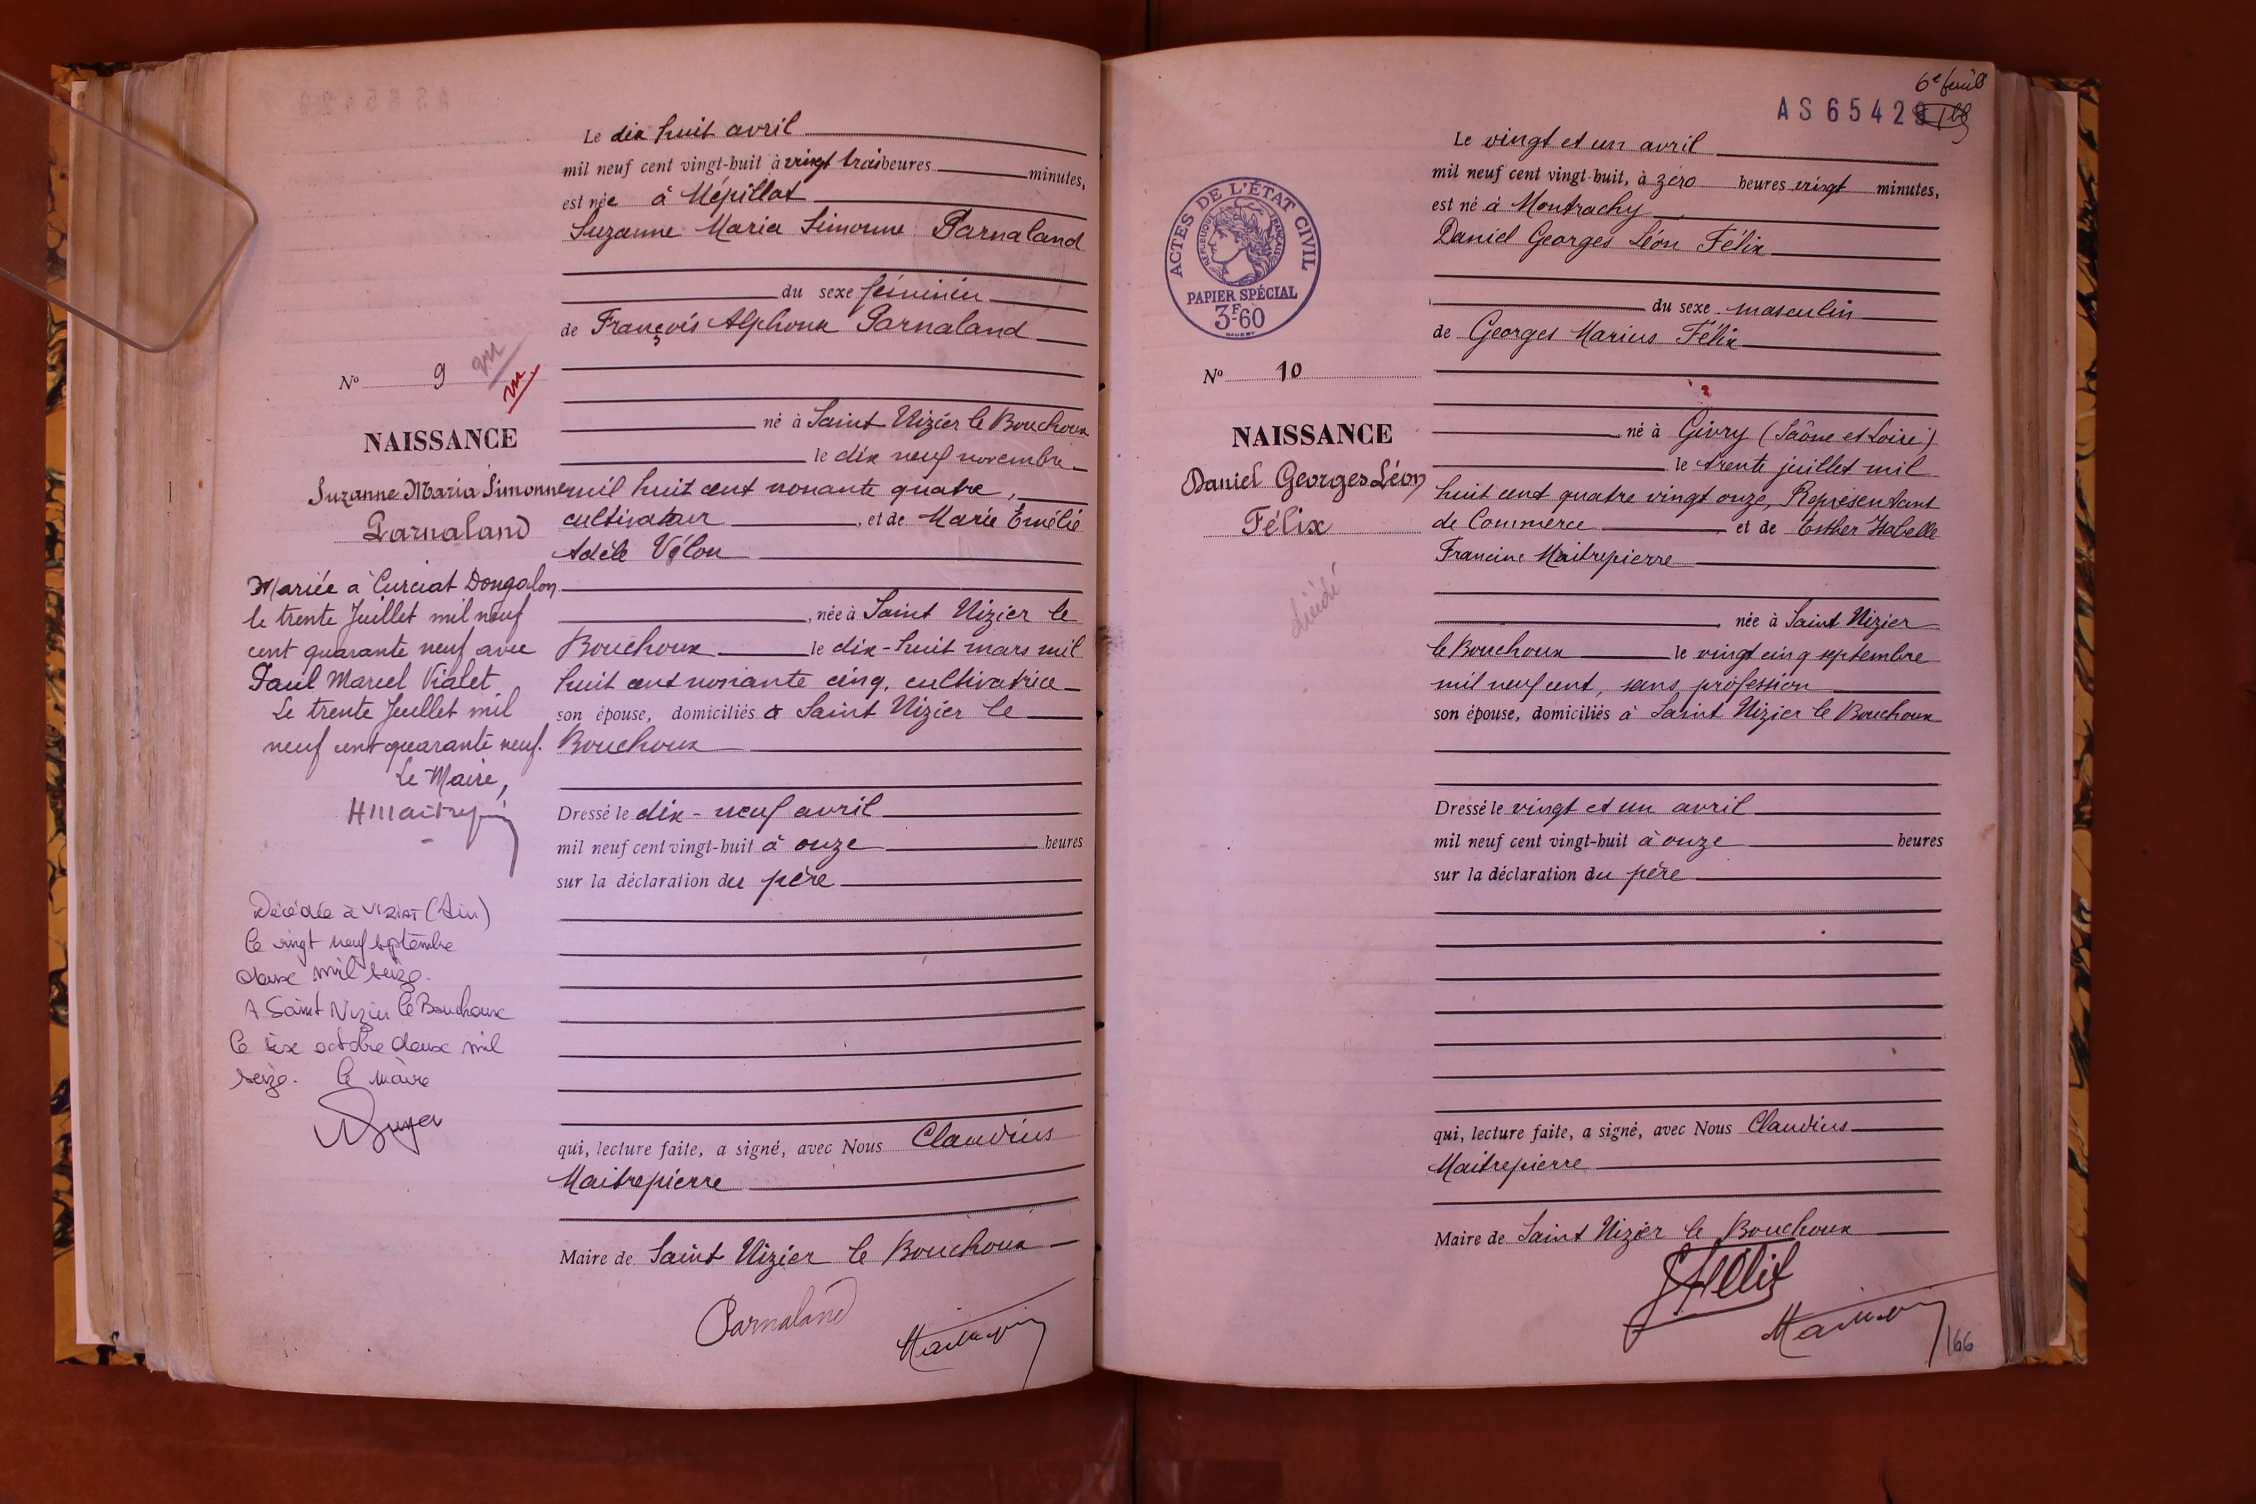 Le dix huit avril
mil neuf cent vingt-huit à vingt trois heures minutes,
est née à Mépillat
Suzanne Maria Simonne Parnaland
du sexe féminin
de François Alphonse Parnaland
N° 9
né à Saint Nizier le Bouchoux
NAISSANCE
le dix neuf novembre
Suzanne Maria Simonne
mil huit cent nonante quatre,
Parnaland
cultivateur, et de Marie Emélie
Adèle Vélon
Mariée à Curciat Dongalon
le trente Juillet mil neuf
cent quarante neuf avec
Paul Marcel Vialet
Le trente Juillet mil
neuf cent quarante neuf.
Le Maire,
, née à Saint Nizier le
Bouchoux le dix-huit mars mil
huit cent nonante cinq, cultivatrice
son épouse, domiciliés à Saint Nizier le
Bouchoux
Dressé le dix-neuf avril
mil neuf cent vingt-huit à onze heures
sur la déclaration du père
Décédée à VIRIAT (Ain)
le vingt neuf septembre
deux mil seize.
A Saint Nizier le Bouchoux
le six octobre deux mil
seize. le maire
qui, lecture faite, a signé, avec Nous Claudius
Maitrepierre
Maire de Saint Nizier le Bouchoux
Parnaland
6e feuil
AS 65429
Le vingt et un avril
mil neuf cent vingt-huit, à zéro heures vingt minutes,
est né à Montrachy
Daniel Georges Léon Félix
ACTES DE L'ÉTAT CIVIL
RÉPUBLIQUE FRANÇAISE
PAPIER SPÉCIAL
3F-60
du sexe masculin
de Georges Marius Félix
N° 10
né à Givry (Saône et Loire)
NAISSANCE
le trente juillet mil
Daniel Georges Léon
huit cent quatre vingt onze, Représentant
Félix
de Commerce et de Esther Isabelle
Francine Maitrepierre
décédé
, née à Saint Nizier
le Bouchoux le vingt cinq septembre
mil neuf cent, sans profession
son épouse, domiciliés à Saint Nizier le Bouchoux
Dressé le vingt et un avril
mil neuf cent vingt-huit à onze heures
sur la déclaration du père
qui, lecture faite, a signé, avec Nous Claudius
Maitrepierre
Maire de Saint Nizier le Bouchoux
Félix
166